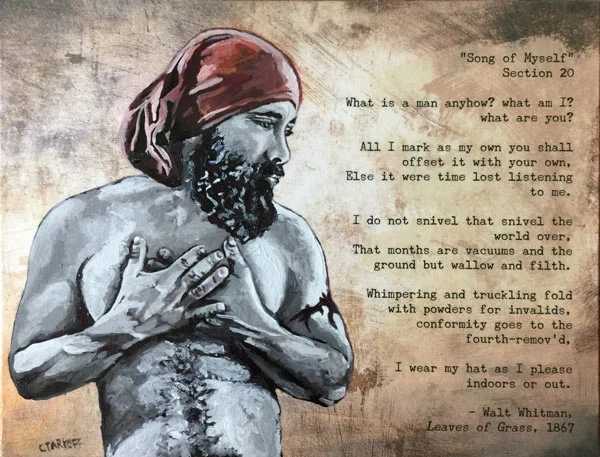 "Song of Myself"
Section 20
What is a man anyhow? what am I?
what are you?
All I mark as my own you shall
offset it with your own,
Else it were time lost listening
to me.
I do not snivel that snivel the
world over,
That months are vacuums and the
ground but wallow and filth.
Whimpering and truckling fold
with powders for invalids,
conformity goes to the
fourth-remov'd,
I wear my hat as I please
indoors or out.
- Walt Whitman,
Leaves of Grass, 1867
C.TARKOFF